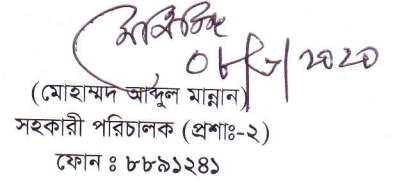 ০৮/৬/২০২০
(মোহাম্মদ আব্দুল মান্নান)
সহকারী পরিচালক (প্রশাঃ-২)
ফোন : ৮৮৯১২৪১